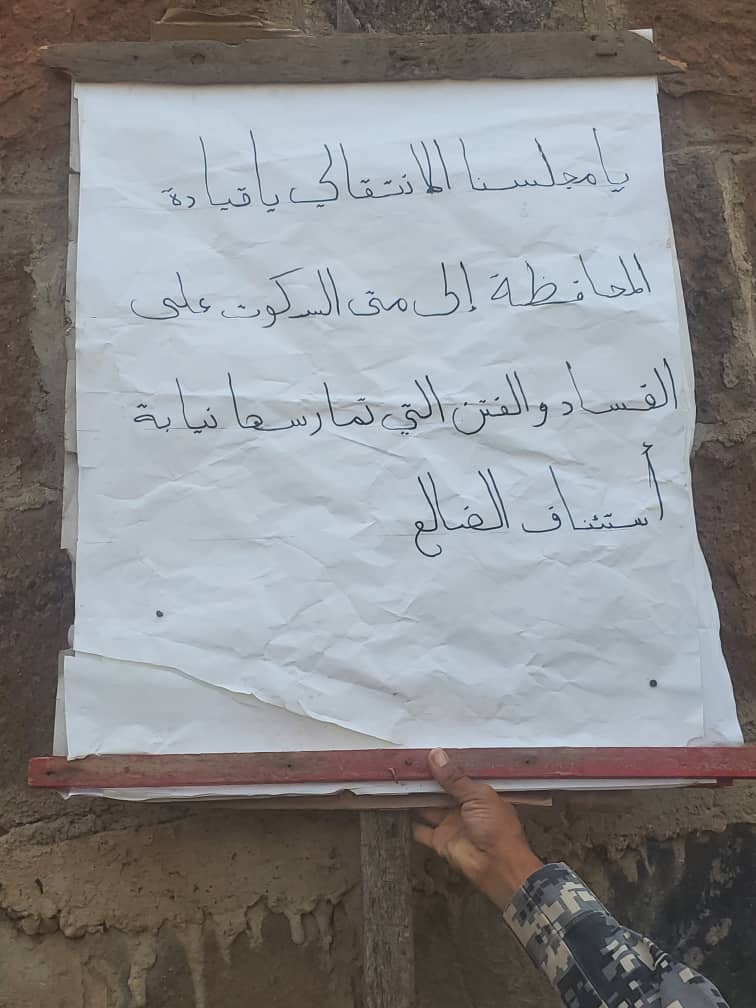 يا مجلسنا الانتقالي يا قيادة
المحافظة إلى متى السكوت على
الفساد والفتن التي تمارسها نيابة
أستئناف الضالع